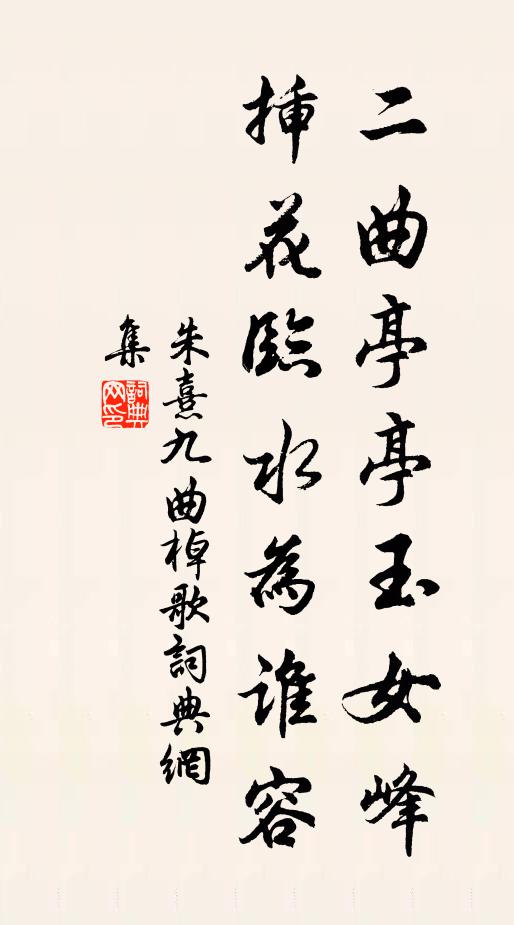 二曲亭亭玉女峰
挿花臨水為誰容
朱熹九曲棹歌詞典網
集
詞典網印